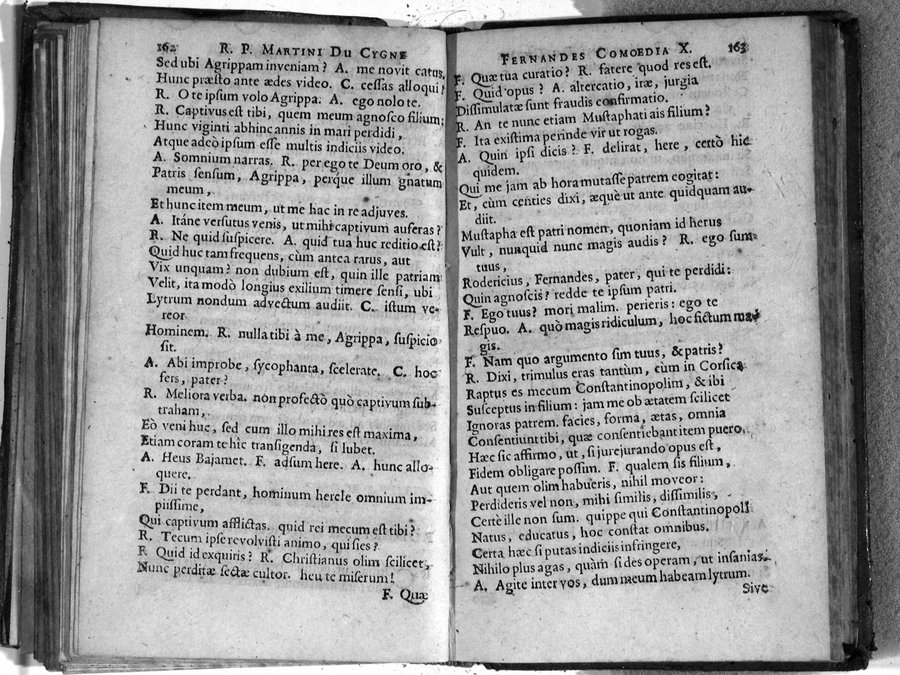 162 R. P. MARTINI DU CYGNE
Sed ubi Agrippam inveniam? A. me novit catus,
Hunc præsto ante ædes video. C. cessas alloqui?
R. O te ipsum volo Agrippa. A. ego nolo te.
R. Captivus est tibi, quem meum agnosco filium;
Hunc viginti abhinc annis in mari perdidi,
Atque adeò ipsum esse multis indiciis video.
A. Somnium narras. R. per ego te Deum oro, &
Patris sensum, Agrippa, perque illum gnatum
meum,
Et hunc item meum, ut me hac in re adjuves.
A. Itáne versutus venis, ut mihi captivum auferas?
R. Ne quid suspicere. A. quid tua huc reditio est?
Quid huc tam frequens, cùm antea rarus, aut
Vix unquam? non dubium est, quin ille patriam
Velit, ita modò longius exilium timere sensi, ubi
Lytrum nondum advectum audiit. C. istum ve-
reor
Hominem. R. nulla tibi à me, Agrippa, suspicio
sit.
A. Abi improbe, sycophanta, scelerate. C. hoc
fers, pater?
R. Meliora verba. non profectò quò captivum sub-
traham,
Eò veni huc, sed cum illo mihi res est maxima,
Etiam coram te hic transigenda, si lubet.
A. Heus Bajamet. F. adsum here. A. hunc allo-
quere.
F. Dii te perdant, hominum hercle omnium im-
piissime,
Qui captivum afflictas. quid rei mecum est tibi?
R. Tecum ipse revolvisti animo, qui sies?
F. Quid id exquiris? R. Christianus olim scilicet,
Nunc perditæ sectæ cultor. heu te miserum!
F. Quæ
FERNANDES COMOEDIA X. 163
F. Quæ tua curatio? R. fatere quod res est.
F. Quid opus? A. altercatio, iræ, jurgia
Dissimulatæ sunt fraudis confirmatio.
R. An te nunc etiam Mustaphati ais filium?
F. Ita existima perinde vir ut rogas.
A. Quin ipsi dicis? F. delirat, here, certò hic
quidem.
Qui me jam ab hora mutasse patrem cogitat:
Et, cùm centies dixi, æquè ut ante quidquam au-
diit.
Mustapha est patri nomen, quoniam id herus
Vult, nunquid nunc magis audis? R. ego sum
tuus,
Rodericius, Fernandes, pater, qui te perdidi:
Quin agnoscis? redde te ipsum patri.
F. Ego tuus? mori malim. perieris: ego te
Respuo. A. quò magis ridiculum, hoc fictum ma-
gis.
F. Nam quo argumento sim tuus, & patris?
R. Dixi, trimulus eras tantùm, cùm in Corsica
Raptus es mecum Constantinopolim, & ibi
Susceptus in filium: jam me ob ætatem scilicet
Ignoras patrem. facies, forma, ætas, omnia
Consentiunt tibi, quæ consentiebant item puero.
Hæc sic affirmo, ut, si jurejurando opus est,
Fidem obligare possim. F. qualem sis filium,
Aut quem olim habueris, nihil moveor:
Perdideris vel non, mihi similis, dissimilis,
Certè ille non sum. quippe qui Constantinopoli
Natus, educatus, hoc constat omnibus.
Certa hæc si putas indiciis infringere,
Nihilo plus agas, quàm si des operam, ut insanias.
A. Agite inter vos, dum meum habeam lytrum.
Sive